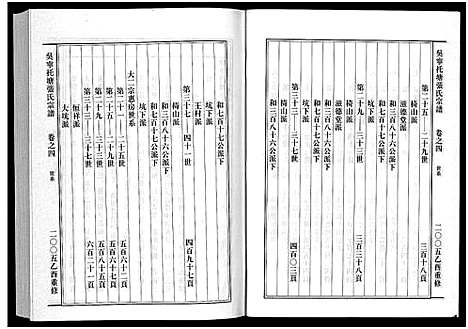 吳寧托塘張氏宗譜
卷之四
世系
二〇〇五乙酉重修
第二十五——二十九世
三百十八頁
和三百八十六公派下
滋德堂派
和七百十七公派下
坑下派
第二十九——三十三世
三百五十八頁
椅山派
滋德堂派
和三百八十六公派下
和七百十七公派下
坑下派
第三十三——三十七世
四百〇三頁
椅山派
和三百八十六公派下
和七百十七公派下
坑下派
王村派
第三十七——四十一世
四百九十七頁
椅山派
和三百八十六公派下
和七百十七公派下
坑下派
大二宗惠房世系
第二十一——二十五世
五百六十二頁
第二十五——二十九世
五百六十七頁
第二十九——三十三世
五百八十五頁
第三十三——三十七世
六百二十一頁
恒祥派
大坑派
吳寧托塘張氏宗譜
卷之四
世系
二〇〇五乙酉重修